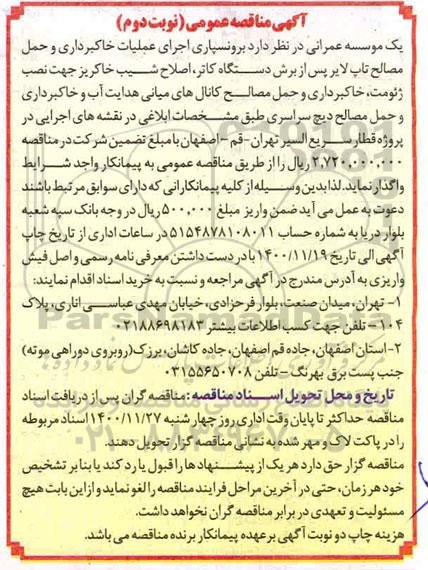 آگهی مناقصه عمومی (نوبت دوم)
یک موسسه عمرانی در نظر دارد برونسپاری اجرای عملیات خاکبرداری و حمل
مصالح تاپ لایر پس از برش دستگاه کاتر، اصلاح شیب خاکریز جهت نصب
ژئومت، خاکبرداری و حمل مصالح کانال های میانی هدایت آب و خاکبرداری
و حمل مصالح دیچ سراسری طبق مشخصات ابلاغی در نقشه های اجرایی در
پروژه قطار سریع السیر تهران-قم-اصفهان با مبلغ تضمین شرکت در مناقصه
۲،۷۲۰،۰۰۰،۰۰۰ ریال را از طریق مناقصه عمومی به پیمانکار واجد شرایط
واگذار نماید. لذا بدین وسیله از کلیه پیمانکارانی که دارای سوابق مرتبط باشند
دعوت به عمل می آید ضمن واریز مبلغ ۵۰۰،۰۰۰ ریال در وجه بانک سپه شعبه
بلوار دریا به شماره حساب ۵۱۵۴۸۷۸۱۰۸۰۱۱ در ساعات اداری از تاریخ چاپ
آگهی الی تاریخ ۱۴۰۰/۱۱/۱۹ با در دست داشتن معرفی نامه رسمی و اصل فیش
واریزی به آدرس مندرج در آگهی مراجعه و نسبت به خرید اسناد اقدام نمایند:
۱- تهران، میدان صنعت، بلوار فرحزادی، خیابان مهدی عباسی اناری، پلاک
۱۰۴ - تلفن جهت کسب اطلاعات بیشتر ۰۲۱۸۸۶۹۸۱۸۳
۲-استان اصفهان، جاده قم اصفهان، جاده کاشان، برزک (روبروی دوراهی موته)
جنب پست برق بهرنگ - تلفن ۰۳۱۵۵۶۵۰۷۰۸
تاریخ و محل تحویل اسناد مناقصه: مناقصه گران پس از دریافت اسناد
مناقصه حداکثر تا پایان وقت اداری روز چهارشنبه ۱۴۰۰/۱۱/۲۷ اسناد مربوطه
را در پاکت لاک و مهر شده به نشانی مناقصه گزار تحویل دهند.
مناقصه گزار حق دارد هر یک از پیشنهادها را قبول یا رد کند یا بنا بر تشخیص
خود هر زمان، حتی در آخرین مراحل فرایند مناقصه را لغو نماید و از این بابت هیچ
مسئولیت و تعهدی در برابر مناقصه گران نخواهد داشت.
هزینه چاپ دو نوبت آگهی بر عهده پیمانکار برنده مناقصه می باشد.